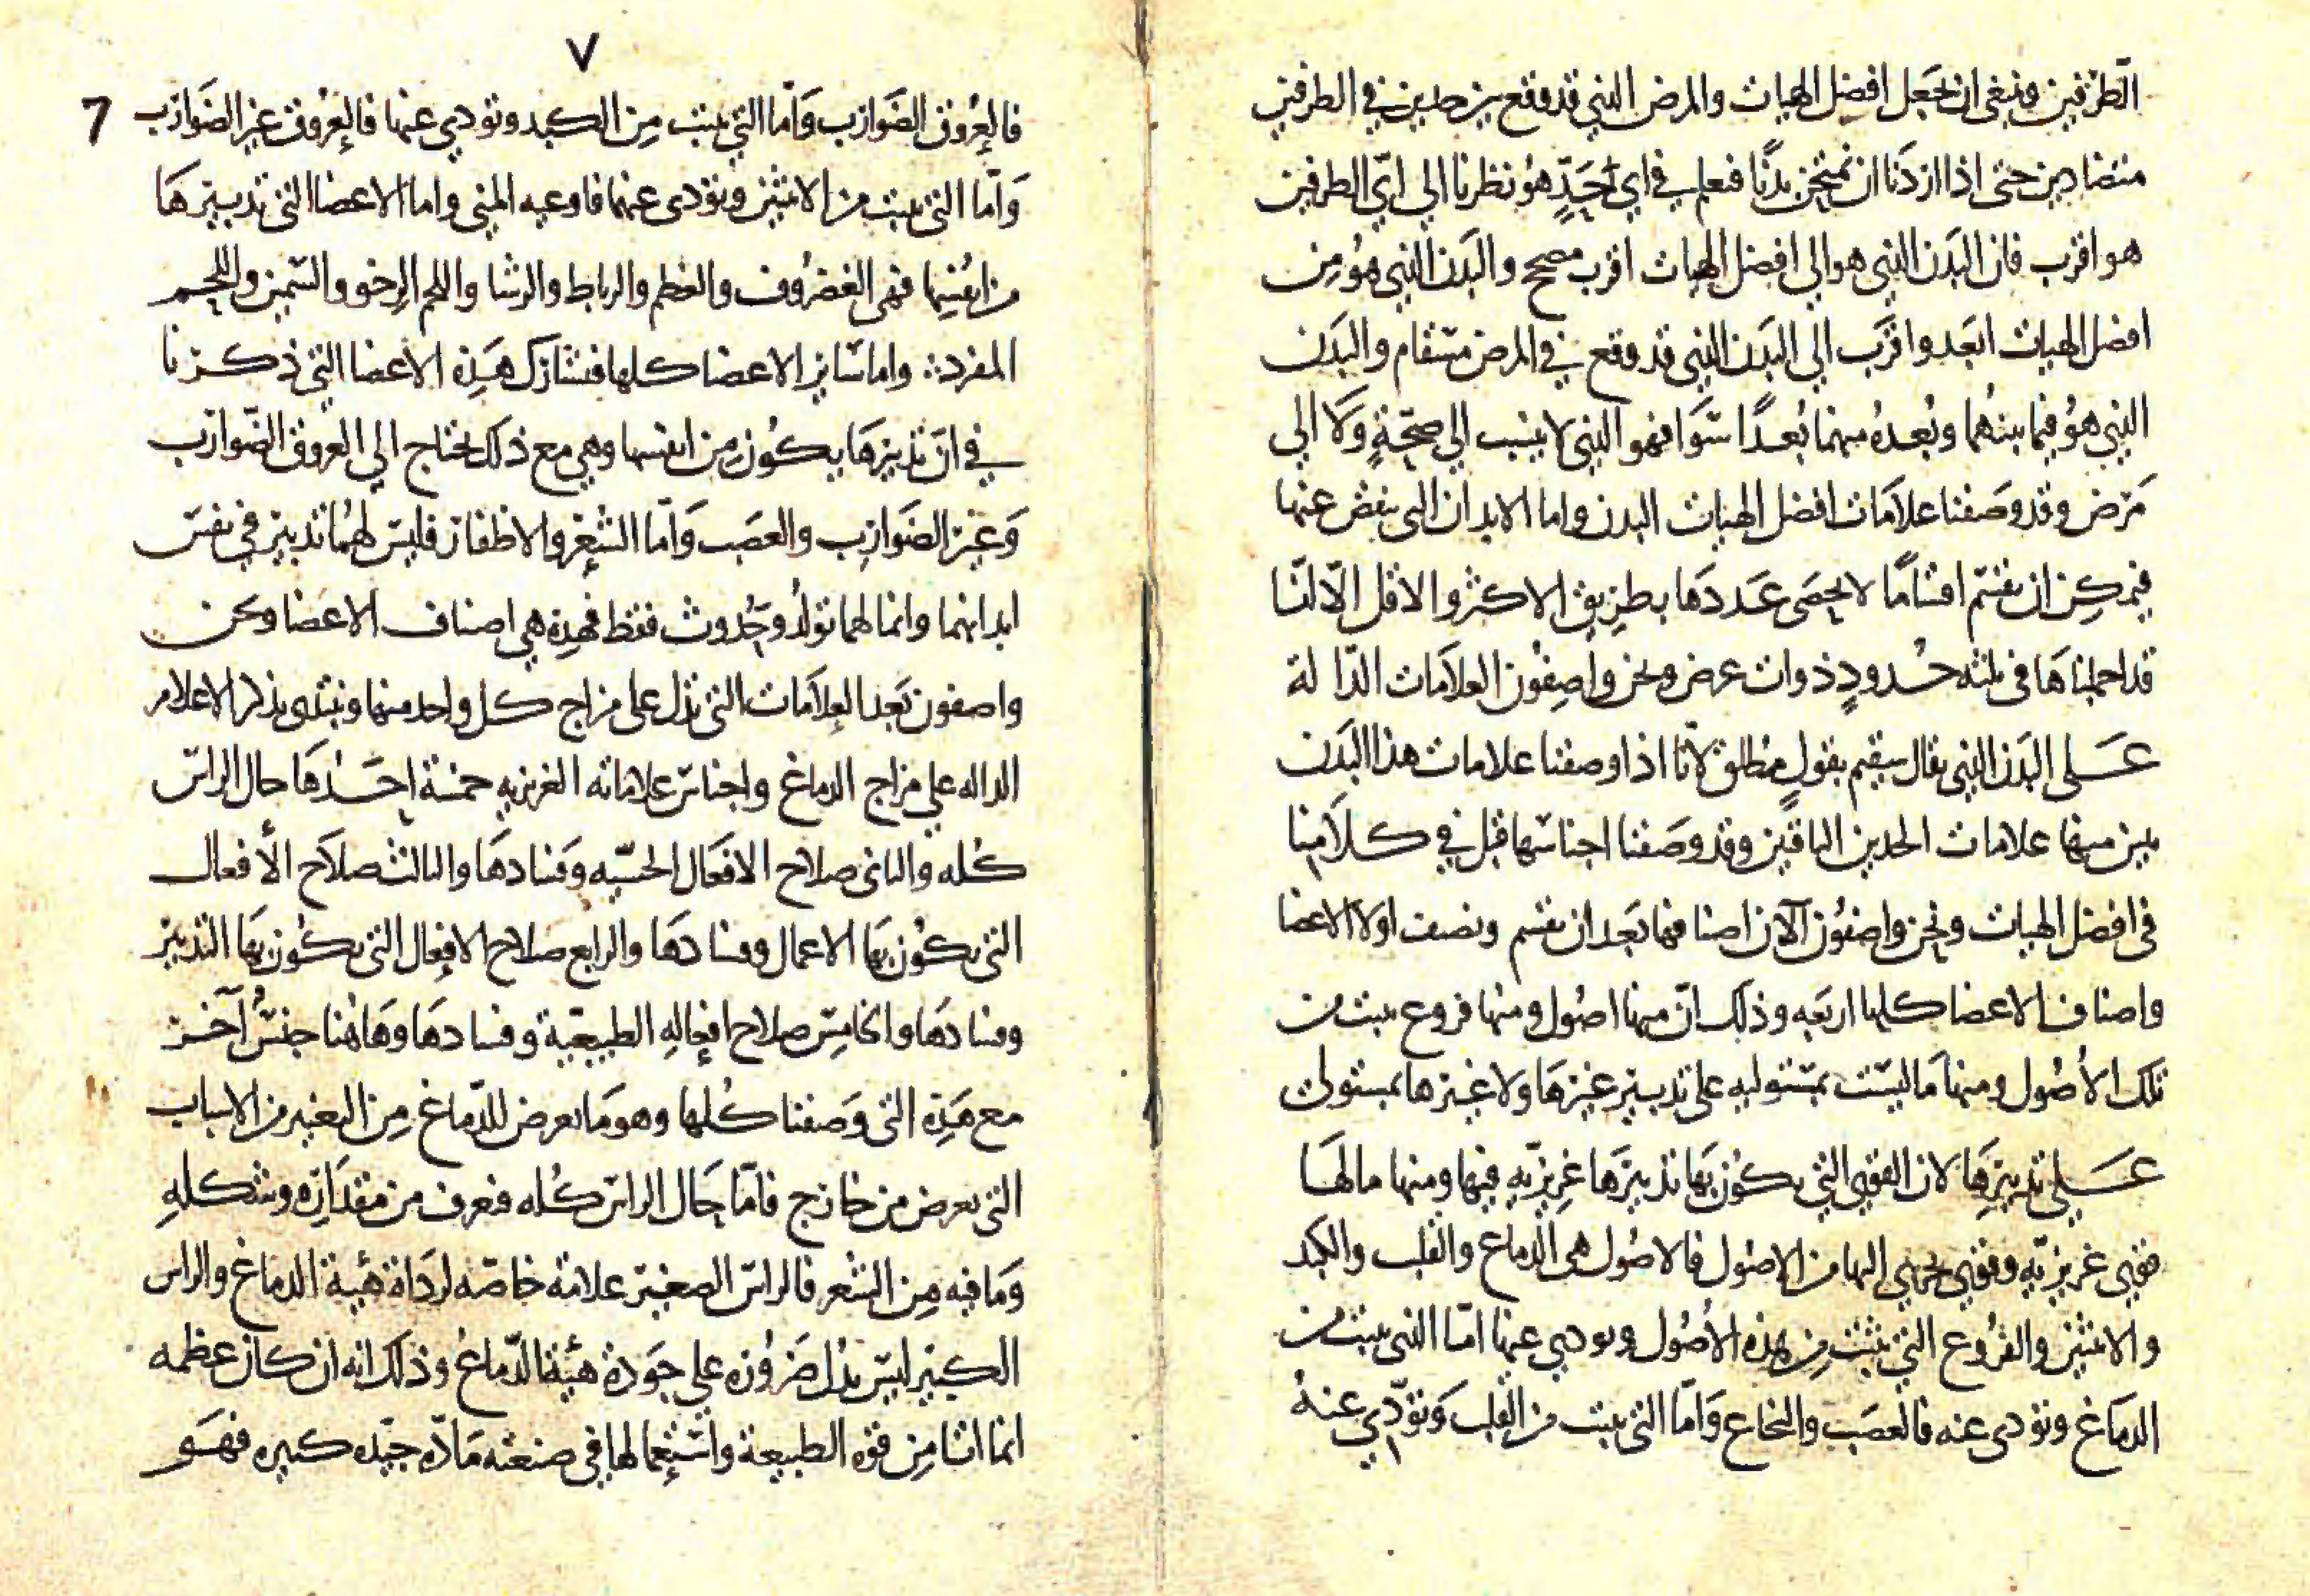 الطرفين وينبغي ان نجعل افضل الهيات والمرض الذي قد وقع بين حدين في الطرفين
متضادين حتى اذا اردنا ان نمتحن بدنًا فنعلم في اي حَدٍّ هُو نظرنا الي ايّ الطرفين
هو اقرب فان البَدَن الذي هو الي افضل الهيات اقرب مصحح والبَدَن الذي هُو مِن
افضل الهيات ابعَد واقرَب الي البَدَن الذي قد وقع في المرض مسقام والبَدَن
الذي هُو فيما بينهُما وبُعدُه منهما بُعدًا سَوَا فهو الذي لا ينسب الي صحّةٍ وَلَا الي
مَرَض وقد وصَفنا علامَات افضل الهيات البدن واما الابدان التي ينقص عنها
فيمكِن ان تقسّم اقسَامًا لا يحصَى عَددَها بطرِيق الاكثر والاقل الّا انّا
قد اجملناهَا في ثلثه حدودٍ ذوات عرض ونحن واصِفُون العلامَات الدّالة
عَلى البَدَن الذي يقال سقيم بقولٍ مُطلق لانّا اذا وصفنا علامات هذا البَدَن
تبين منها علامات الحدين الباقيين وقد وصَفنا اجناسها قبل في كلامِنا
في افضل الهيات ونحن واصفُون الآن اصنافها بَعد ان نقسم ونصف اولا الاعضا
واصناف الاعضا كلها اربَعه وذلك انّ منها اصُول ومنها فروع ينبت من
تلك الأصُول ومنها مَا ليسَت بمستوليه على تدبير غيرهَا ولا غيرها بمستول
عَلي تدبيرِهَا لان القوي التي يكُون بَها تدبيرَها غرِيزيّه فيها ومنها ما لها
قوي غريزيّه وقوي يجري اليها من الاصُول فالاصُول هي الدماغ والقلب والكبد
والانثيين والفرُوع التي ينبت مِن هذه الأصُول ويودي عنها امّا التي ينبت من
الدمَاغ وتؤدي عنه فالعصَب والنخاع وَامّا التي ينبت من القلب وَتؤدّي عنهُ
٧
7
فالعُرُوق الضَوارِب وَامّا التي ينبت مِن الكبد وتؤدي عنها فالعُرُوق غير الضَوارب
وَامّا التي ينبت من الانثيين وتؤدى عنهما فاوعيه المني واما الاعضا التي تدبيرهَا
من انفُسِها فهي الغضرُوف والعظم والرباط والغشا واللحم الرخو والسّمين واللحم
المفرد واما سَاير الاعضا كلها فتشارك هَذِه الاعضا التي ذكرنا
في انّ تدبيرهَا يكُون من انفسها وهي مع ذلك تحتاج الي العروق الضّوارب
وَغير الضَوارِب والعصَب وَامّا الشّعر والاظفار فليسّ لهُما تدبير في نفس
ابدانهما وانما لهما تولّد وحُدوث فقط فهذِه هي اصناف الاعضا ونحن
واصفون بَعد العلامَات التي تدل على مزاج كل واحد منها ونبتدى بذكر الاعلام
الداله علي مزاج الدماغ واجناس علاماته الغريزيه خمسة احَدهَا حال الراس
كُله والثاني صلاح الافعَال الحسّيه وَفسادهَا والثالث صلَاح الأفعال
التي يكُون بهَا الاعمال وفسادهَا والرابع صلاح الافعال التي يكُون بهَا التدبير
وفسادهَا والخامِس صلاح افعالِه الطبيعيّة وفسادهَا وهَاهُنا جنسٌ آخر
مع هَذِه التي وَصفنا كُلها وهو مَا يعرض للدّماغ مِن التغيير من الاسباب
التي تعرض من خارج فامّا حَال الراسّ كُله فتعرف من مقدَارِه وشكلهِ
وَما فيه مِن الشعر فالراس الصغير علامة خاصّه لردَاة هيئة الدماغ والراس
الكبير ليسّ يدُل ضرُوره علي جَودة هيئة الدّماغ وذلك انه ان كان عظمه
انما اتا مِن قوّه الطبيعة واستعمالها في صنعته مَادّه جيّده كثيره فهَو